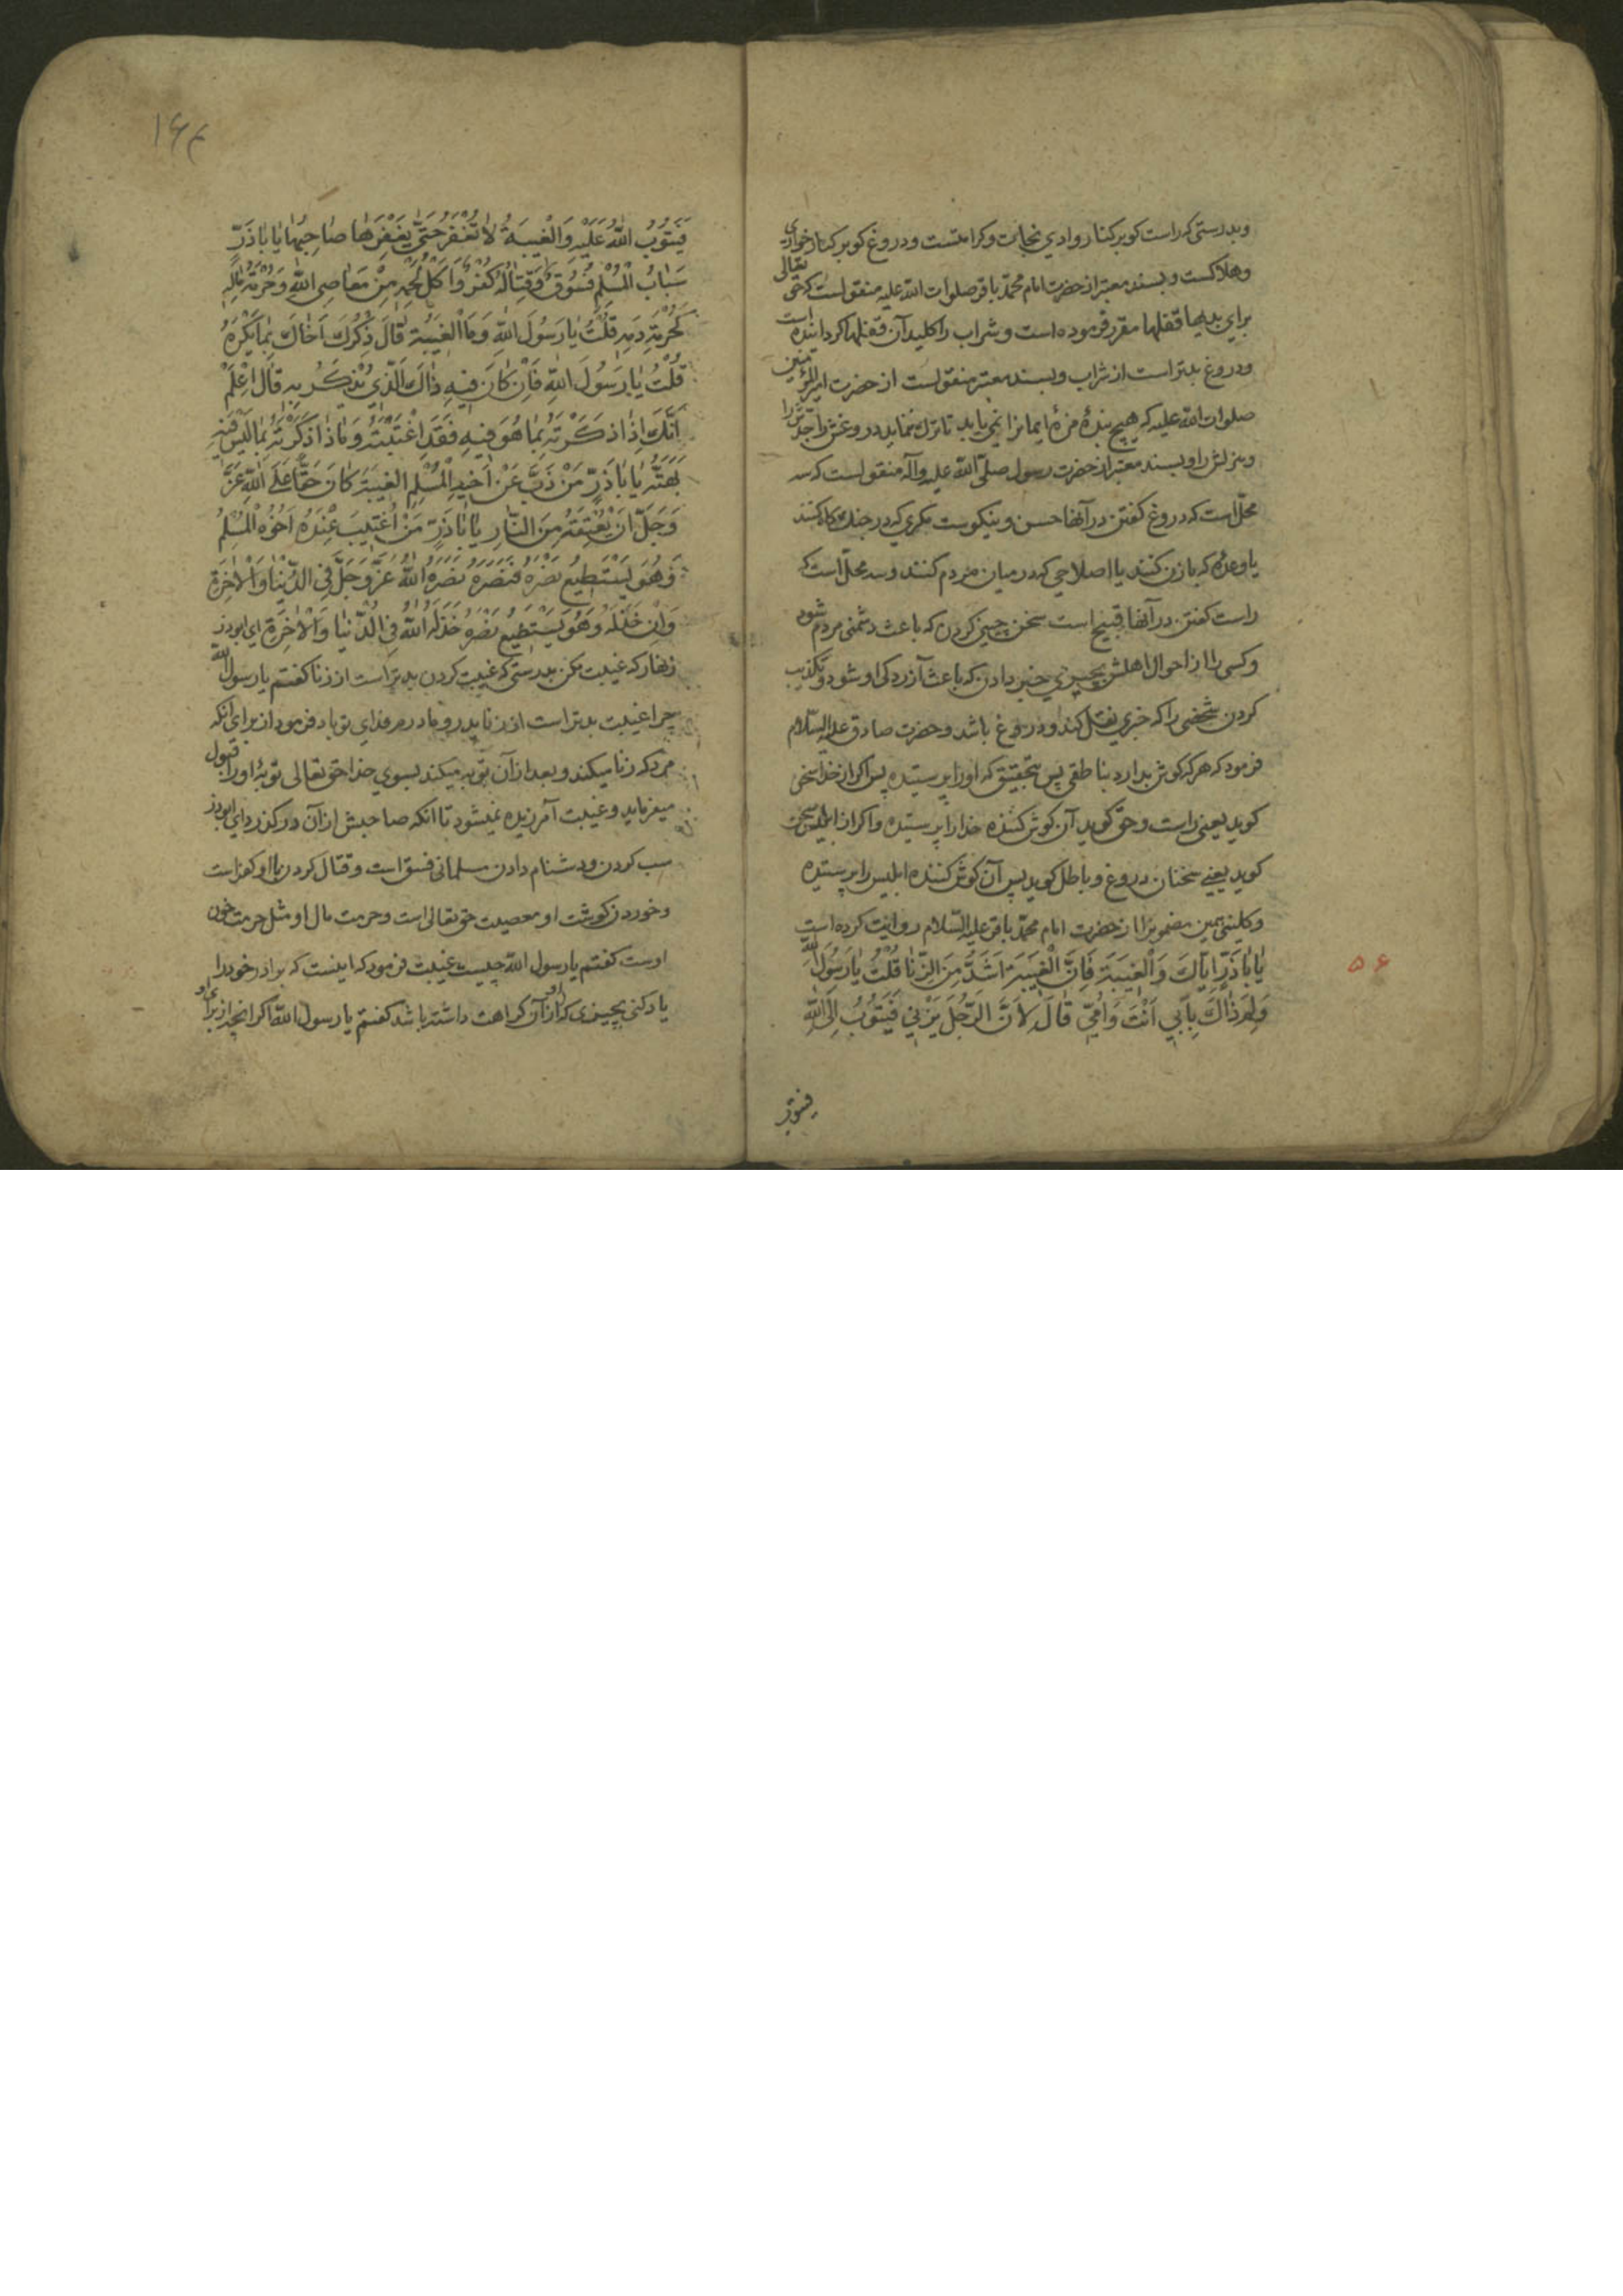 وبدرستی که راست کو بر کنار وادی نجات و کرامتست و دروغ کو بر کنار خواری
وهلاکست و بسند معتبر از حضرت امام محمد باقر صلوات الله علیه منقولست که حق تعالی
برای بدیها قفلها مقرر فرموده است و شراب را کلید آن قفلها کردانیده است
و دروغ بدتر است از شراب و بسند معتبر منقولست از حضرت امیرالمؤمنین
صلوات الله علیه که هیچ بنده مزهٔ ایمانرا نمی یابد تا ترك ننماید دروغش را جدّش را
و هزلش را و بسند معتبر از حضرت رسول صلّی الله علیه وآله منقولست که سه
محلّ است که دروغ کفتن در آنها حسن و نیکوست مکری که در جنك کاه کنند
یا وعدهٔ که با زن کنند یا اصلاحی که در میان مردم کنند و سه محلّ است که
راست کفتن در آنها قبیح است سخن چینی کردن که باعث دشمنی مردم شود
و کسی را از احوال اهلش بچیزی خبر دادن که باعث آزردکی او شود و تکذیب
کردن شخصی را که خبری نقل کند و دروغ باشد و حضرت صادق علیه السّلام
فرمود که هر که کوش بدارد بناطقی پس بتحقیق که او را پرستیده پس اکر از خدا سخن
کوید یعنی راست و حق کوید آن کوش کننده خدا را پرستیده و اکر از ابلیس سخن
کوید یعنی سخنان دروغ و باطل کوید پس آن کوش کننده ابلیس را پرستیده
و کلینی همین مضمونرا از حضرت امام محمّد باقر علیه السّلام روایت کرده است
یَا بَاذَرٍّ اِیَّاكَ وَالْغِیبَةَ فَاِنَّ الْغِیبَةَ اَشَدُّ مِنَ الزِّنَا قُلْتُ یَا رَسُولَ اللّٰهِ
وَلِمَ ذَاكَ بِاَبِی اَنْتَ وَاُمِّی قَالَ لِاَنَّ الرَّجُلَ یَزْنِی فَیَتُوبُ اِلَی اللّٰهِ
فیتوب
۵۶
۱۶۳
فَیَتُوبُ اللّٰهُ عَلَیْهِ وَالْغِیبَةُ لَا تُغْفَرُ حَتّٰی یَغْفِرَهَا صَاحِبُهَا یَا بَاذَرٍّ
سِبَابُ الْمُسْلِمِ فُسُوقٌ وَقِتَالُهُ كُفْرٌ وَاَكْلُ لَحْمِهِ مِنْ مَعَاصِی اللّٰهِ وَحُرْمَةُ مَالِهِ
كَحُرْمَةِ دَمِهِ قُلْتُ یَا رَسُولَ اللّٰهِ وَمَا الْغِیبَةُ قَالَ ذِكْرُكَ اَخَاكَ بِمَا یَكْرَهُ
قُلْتُ یَا رَسُولَ اللّٰهِ فَاِنْ كَانَ فِیهِ ذَاكَ الَّذِی یُذْكَرُ بِهِ قَالَ اعْلَمْ
اَنَّكَ اِذَا ذَكَرْتَهُ بِمَا هُوَ فِیهِ فَقَدِ اغْتَبْتَهُ وَاِذَا ذَكَرْتَهُ بِمَا لَیْسَ فِیهِ
بَهَتَّهُ یَا بَاذَرٍّ مَنْ ذَبَّ عَنْ اَخِیهِ الْمُسْلِمِ الْغِیبَةَ كَانَ حَقًّا عَلَی اللّٰهِ عَزَّ
وَجَلَّ اَنْ یُعْتِقَهُ مِنَ النَّارِ یَا بَاذَرٍّ مَنِ اغْتِیبَ عِنْدَهُ اَخُوهُ الْمُسْلِمُ
وَهُوَ یَسْتَطِیعُ نَصْرَهُ فَنَصَرَهُ نَصَرَهُ اللّٰهُ عَزَّ وَجَلَّ فِی الدُّنْیَا وَالْاٰخِرَةِ
وَاِنْ خَذَلَهُ وَهُوَ یَسْتَطِیعُ نَصْرَهُ خَذَلَهُ اللّٰهُ فِی الدُّنْیَا وَالْاٰخِرَةِ ای ابوذر
زنهار که غیبت مکن بدرستی که غیبت کردن بدتر است از زنا کفتم یا رسول الله
چرا غیبت بدتر است از زنا پدر و مادرم فدای تو باد فرمود از برای آنکه
مردکه زنا میکند و بعد از آن توبه میکند بسوی خدا حق تعالی توبهٔ او را قبول
میفرماید و غیبت آمرزیده نمیشود تا آنکه صاحبش از آن در کذرد ای ابوذر
سب کردن و دشنام دادن مسلمانی فسق است و قتال کردن با او کفر است
و خوردن کوشت او معصیت حق تعالی است و حرمت مال او مثل حرمت خون
اوست کفتم یا رسول الله چیست غیبت فرمود که اینست که برادر خود را
یاد کنی بچیزی که او از آن کراهت داشته باشد کفتم یا رسول الله اکر آنچیز از برای او